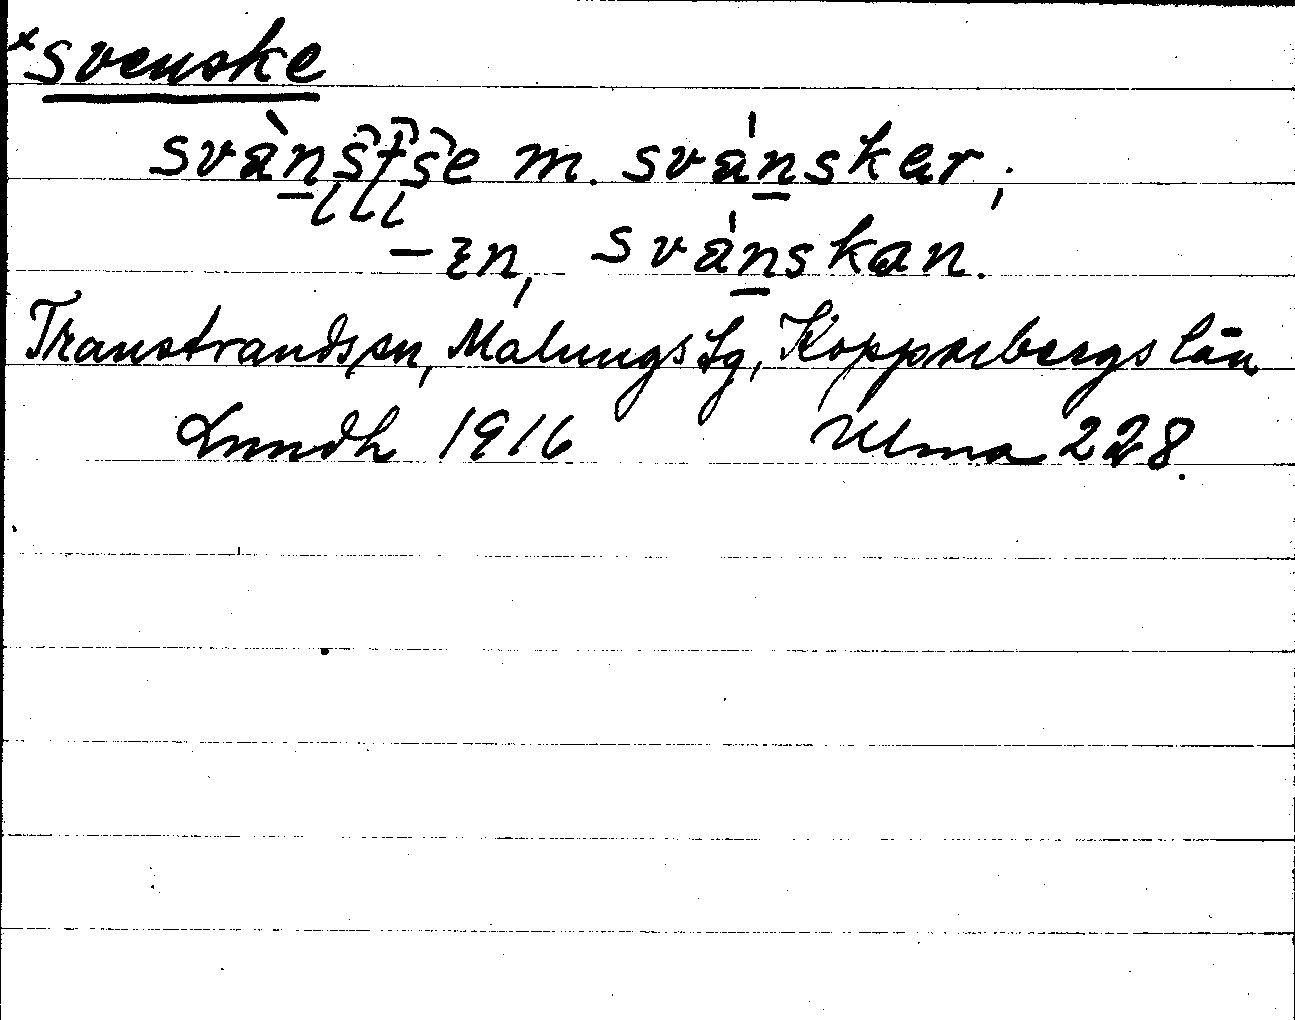 ×svenske
svä̀nstse m. svä́nskar;
-ɛn, svä́nskan.
Transtrands sn, Malungs Lg, Kopparbergs län
Lundh 1916 Ulma 228.